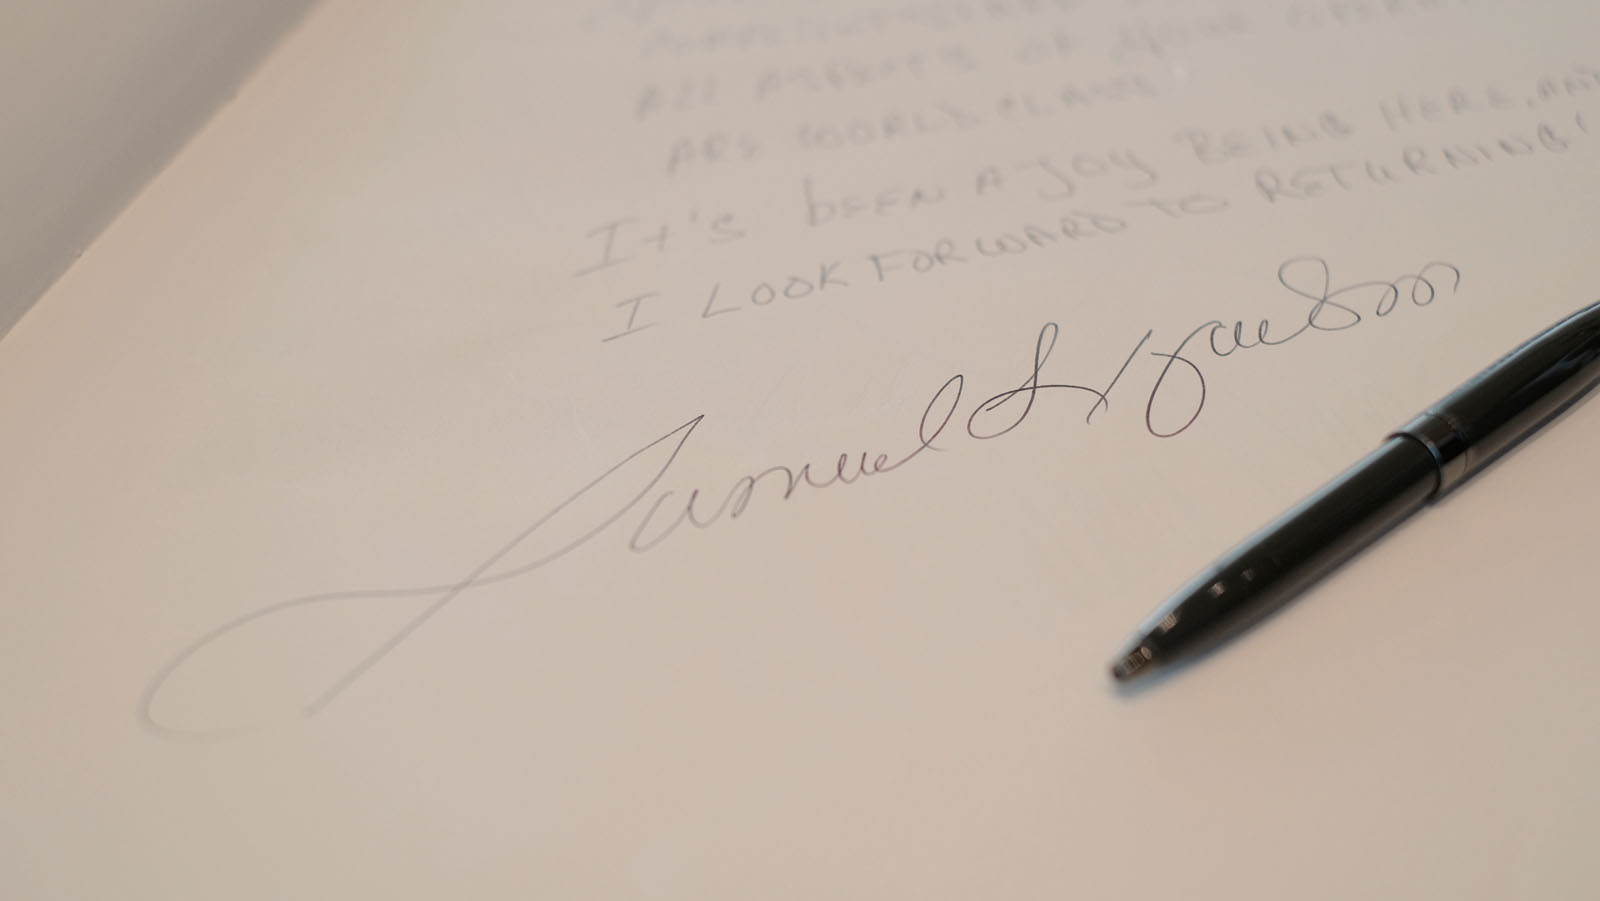 ALL ASPECTS OF YOUR
ARE WORLD CLASS
It's bEEN A JOY BEING HERE, AND
I LOOK FORWARD TO RETURNING!
Samuel L Jackson